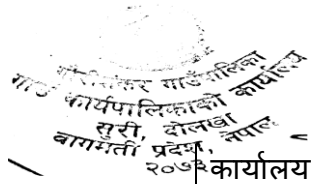 गौरीशंकर गाउँपालिका
गाउँ कार्यपालिकाको कार्यालय
सुरी, दोलखा
बागमती प्रदेश, नेपाल
२०७३
कार्यालय